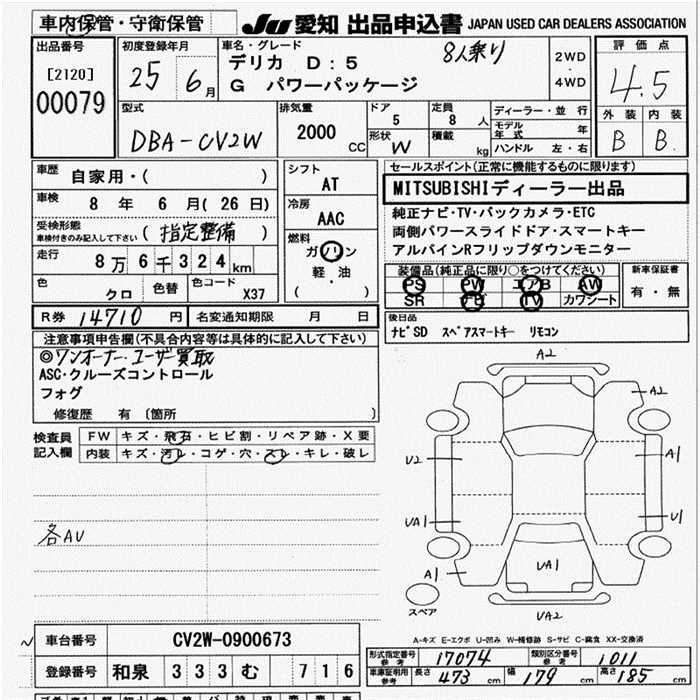 車内保管・守衛保管
JU 愛知 出品申込書 JAPAN USED CAR DEALERS ASSOCIATION
出品番号
[2120]
00079
初度登録年月
25 6月
車名・グレード
デリカ D:5 8人乗り
G パワーパッケージ
2WD
・
4WD
評価点
4.5
外装 内装
B B
型式
DBA-CV2W
排気量
2000 CC
ドア
5
形状
W
定員
8人
積載
kg
ディーラー・並行
モデル年式 年
ハンドル 左・右
車歴
自家用・( )
車検
8年 6月(26日)
受検形態
車検付きのみ記入して下さい (指定整備)
走行
8万6千324km
色
クロ
色替
色コード
X37
シフト
AT
冷房
AAC
燃料
ガソリン
軽・油
( )
セールスポイント(正常に機能するものに限ります)
MITSUBISHIディーラー出品
純正ナビ・TV・バックカメラ・ETC
両側パワースライドドア・スマートキー
アルパインRフリップダウンモニター
装備品(純正品に限り○をつけてください)
PS PW エアB AW
SR ナビ TV カワシート
新車保証書
有・無
R券 14710円
名変通知期限 月 日
後日品
ナビSD スペアスマートキー リモコン
注意事項申告欄(不具合内容等は具体的に記入して下さい)
◎ワンオーナー ユーザ買取
ASC・クルーズコントロール
フォグ
修復歴 有 〔箇所 〕
検査員
記入欄
FW キズ・飛石・ヒビ割・リペア跡・X要
内装 キズ・汚レ・コゲ・穴・スレ・キレ・破レ
各AU
A2
A2
U2
A1
UA1
U1
A1
UA1
UA2
スペア
A-キズ E-エクボ U-凹み W-補修跡 S-サビ C-腐食 XX-交換済
車台番号 CV2W-0900673
登録番号 和泉 333 む 716
形式指定番号
参考
17074
類別区分番号
参考
1011
車庫証明用
参考
長さ 473cm 幅 179cm 高さ 185cm